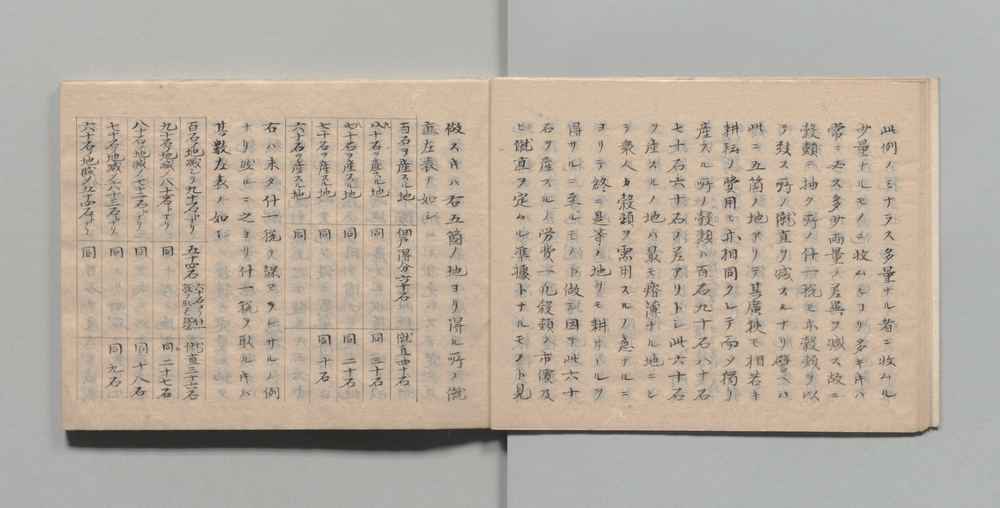 此例ノミナラス多量ナル者ニ收ムル
少量ナルモノニ收ムルヨリ多キキハ
常ニ夫ス多少両量ノ差異ヲ減ス故ニ
穀類ニ抽ク所ノ什一税モ亦穀類ヲ以
テ發ス所ノ僦直ヲ減スルナリ譬ヘハ
此ニ五箇ノ地アリテ其廣狹モ相若キ
耕耘ノ費用モ亦相同クシテ而メ獨リ
産スル所ノ穀類ハ百石九十石八十石
七十石六十石ヲ差アリトシ此六十石
ヲ産スルノ地ハ最モ瘠薄ナル地ニシ
テ衆人カ穀類ヲ需用スルノ急ナルニ
ヨリテ終ニ是等ノ地ヲモ耕ホトルヲ
得サルニ至ルモノト做シ因テ此六十
石ヲ産スルノ労費ニ凡穀類ノ市價及
ヒ僦直ヲ定ムル準據トナルモノト見
做スキハ右五箇ノ地ヨリ得ル所ノ僦
直左表ノ如シ
百石ヲ産スル地 佃戸得分六十石 僦直四十石
九十石ヲ産スル地 同 同三十石
八十石ヲ産スル地 同 同二十石
七十石ヲ産スル地 同 同十石
六十石ヲ産スル地 同
右ハ未タ什一税ヲ課セラレサルノ例
ナリ故ニ之ヨリ什一税ヲ取ルキハ
其數左表ノ如シ
百石ノ地減シテ九十石トナリ 五十四石 僦直三十六石
九十石ノ地減ノ八十一石トナリ 同 同二十七石
八十石ノ地減ノ七十二石トナリ 同 同十八石
七十石ノ地減ノ六十三石トナリ 同 同九石
六十石ノ地減ノ五十四石トナリ 同